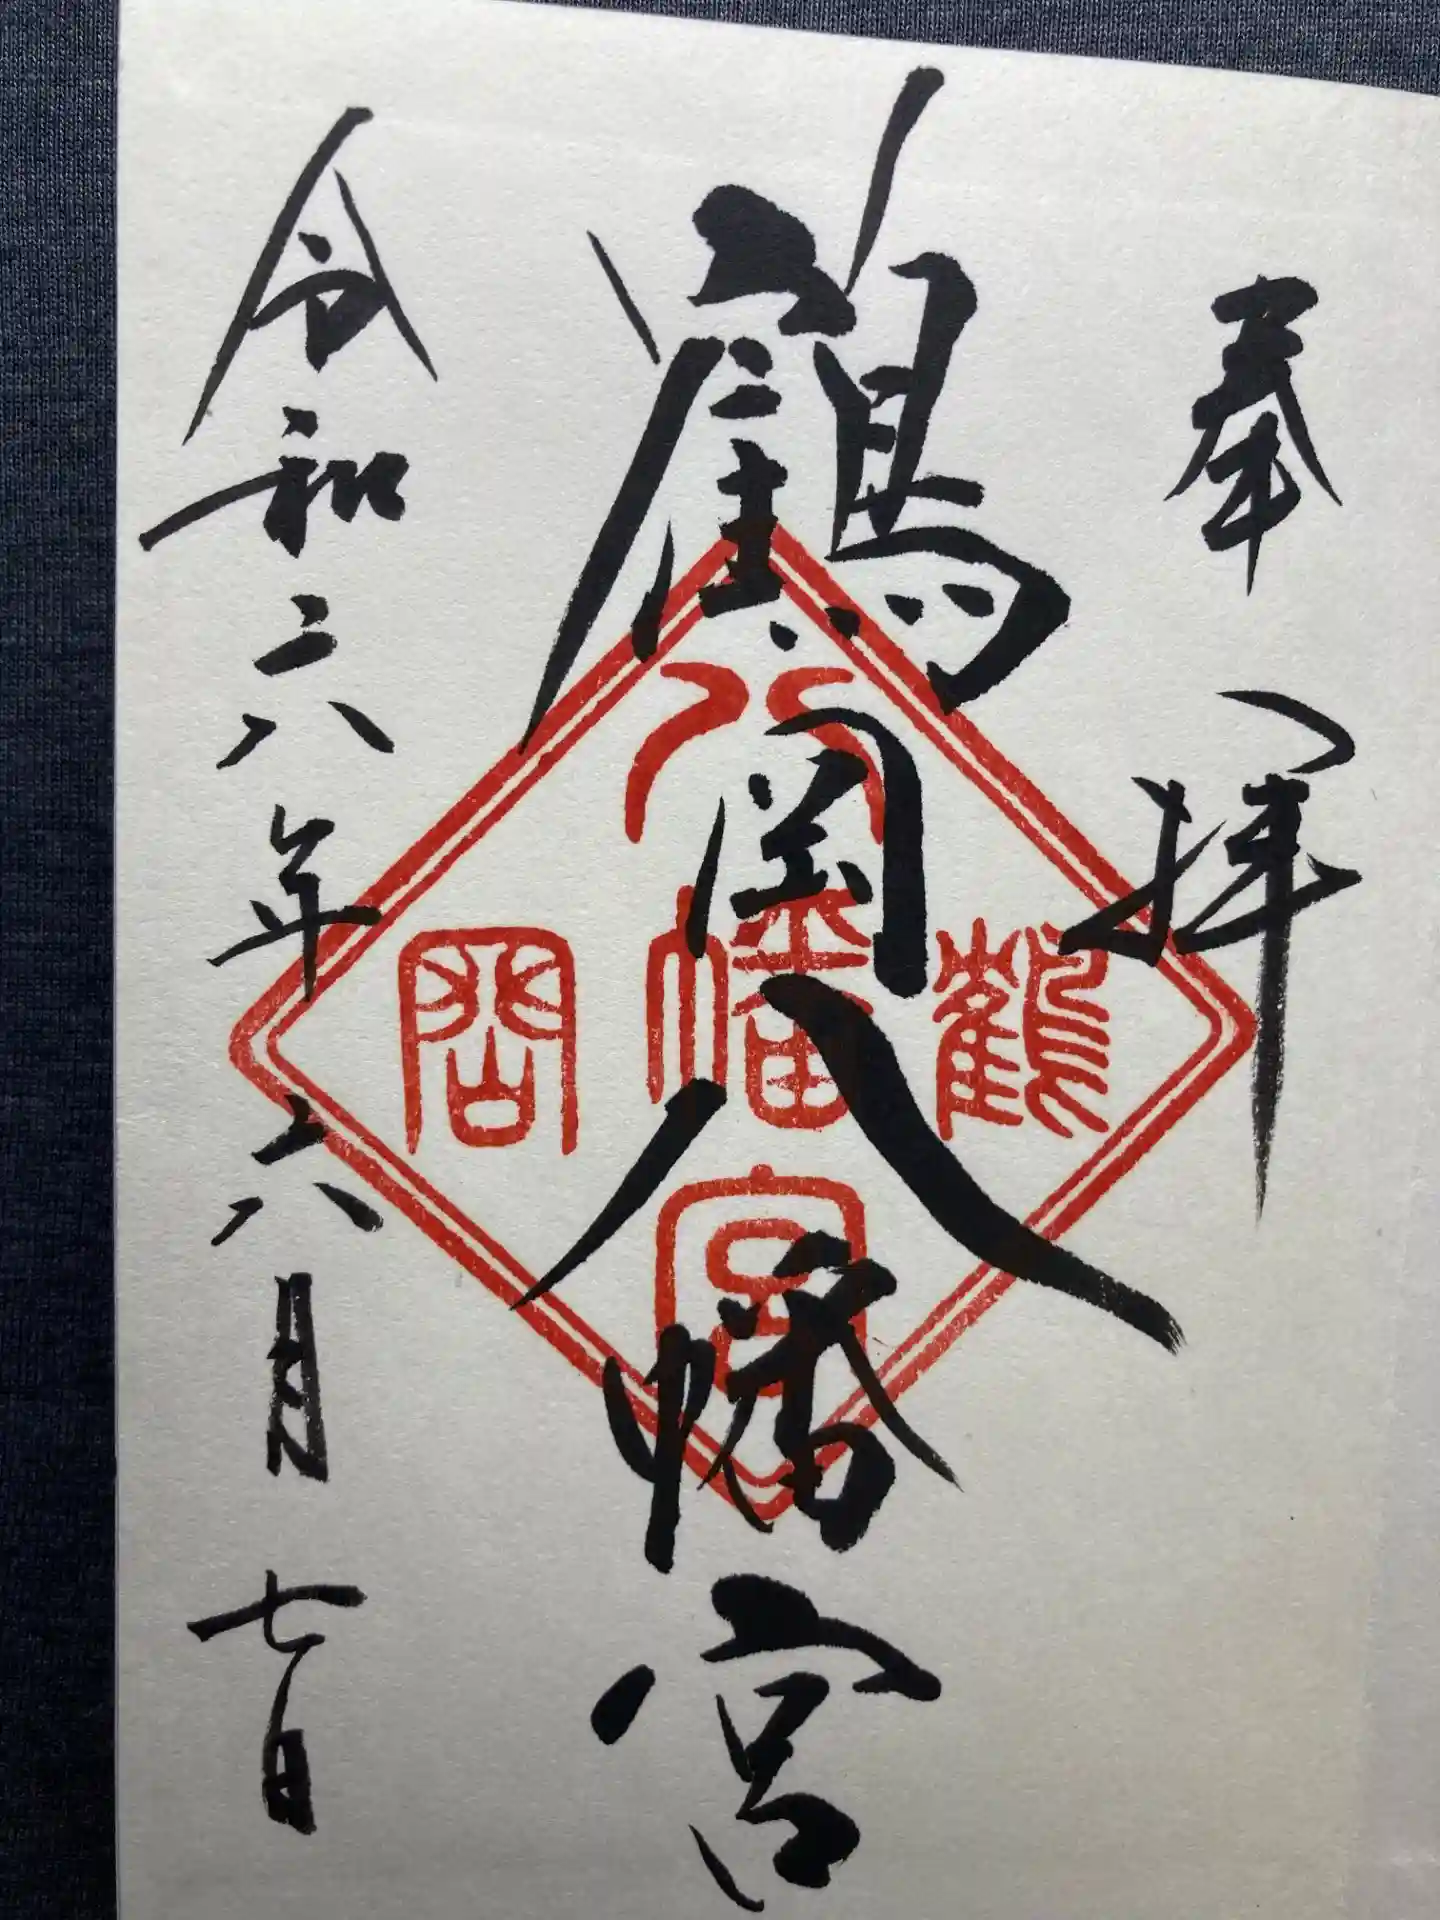 奉拝
鶴岡八幡宮
八
鶴幡岡
宮
令和六年六月七日